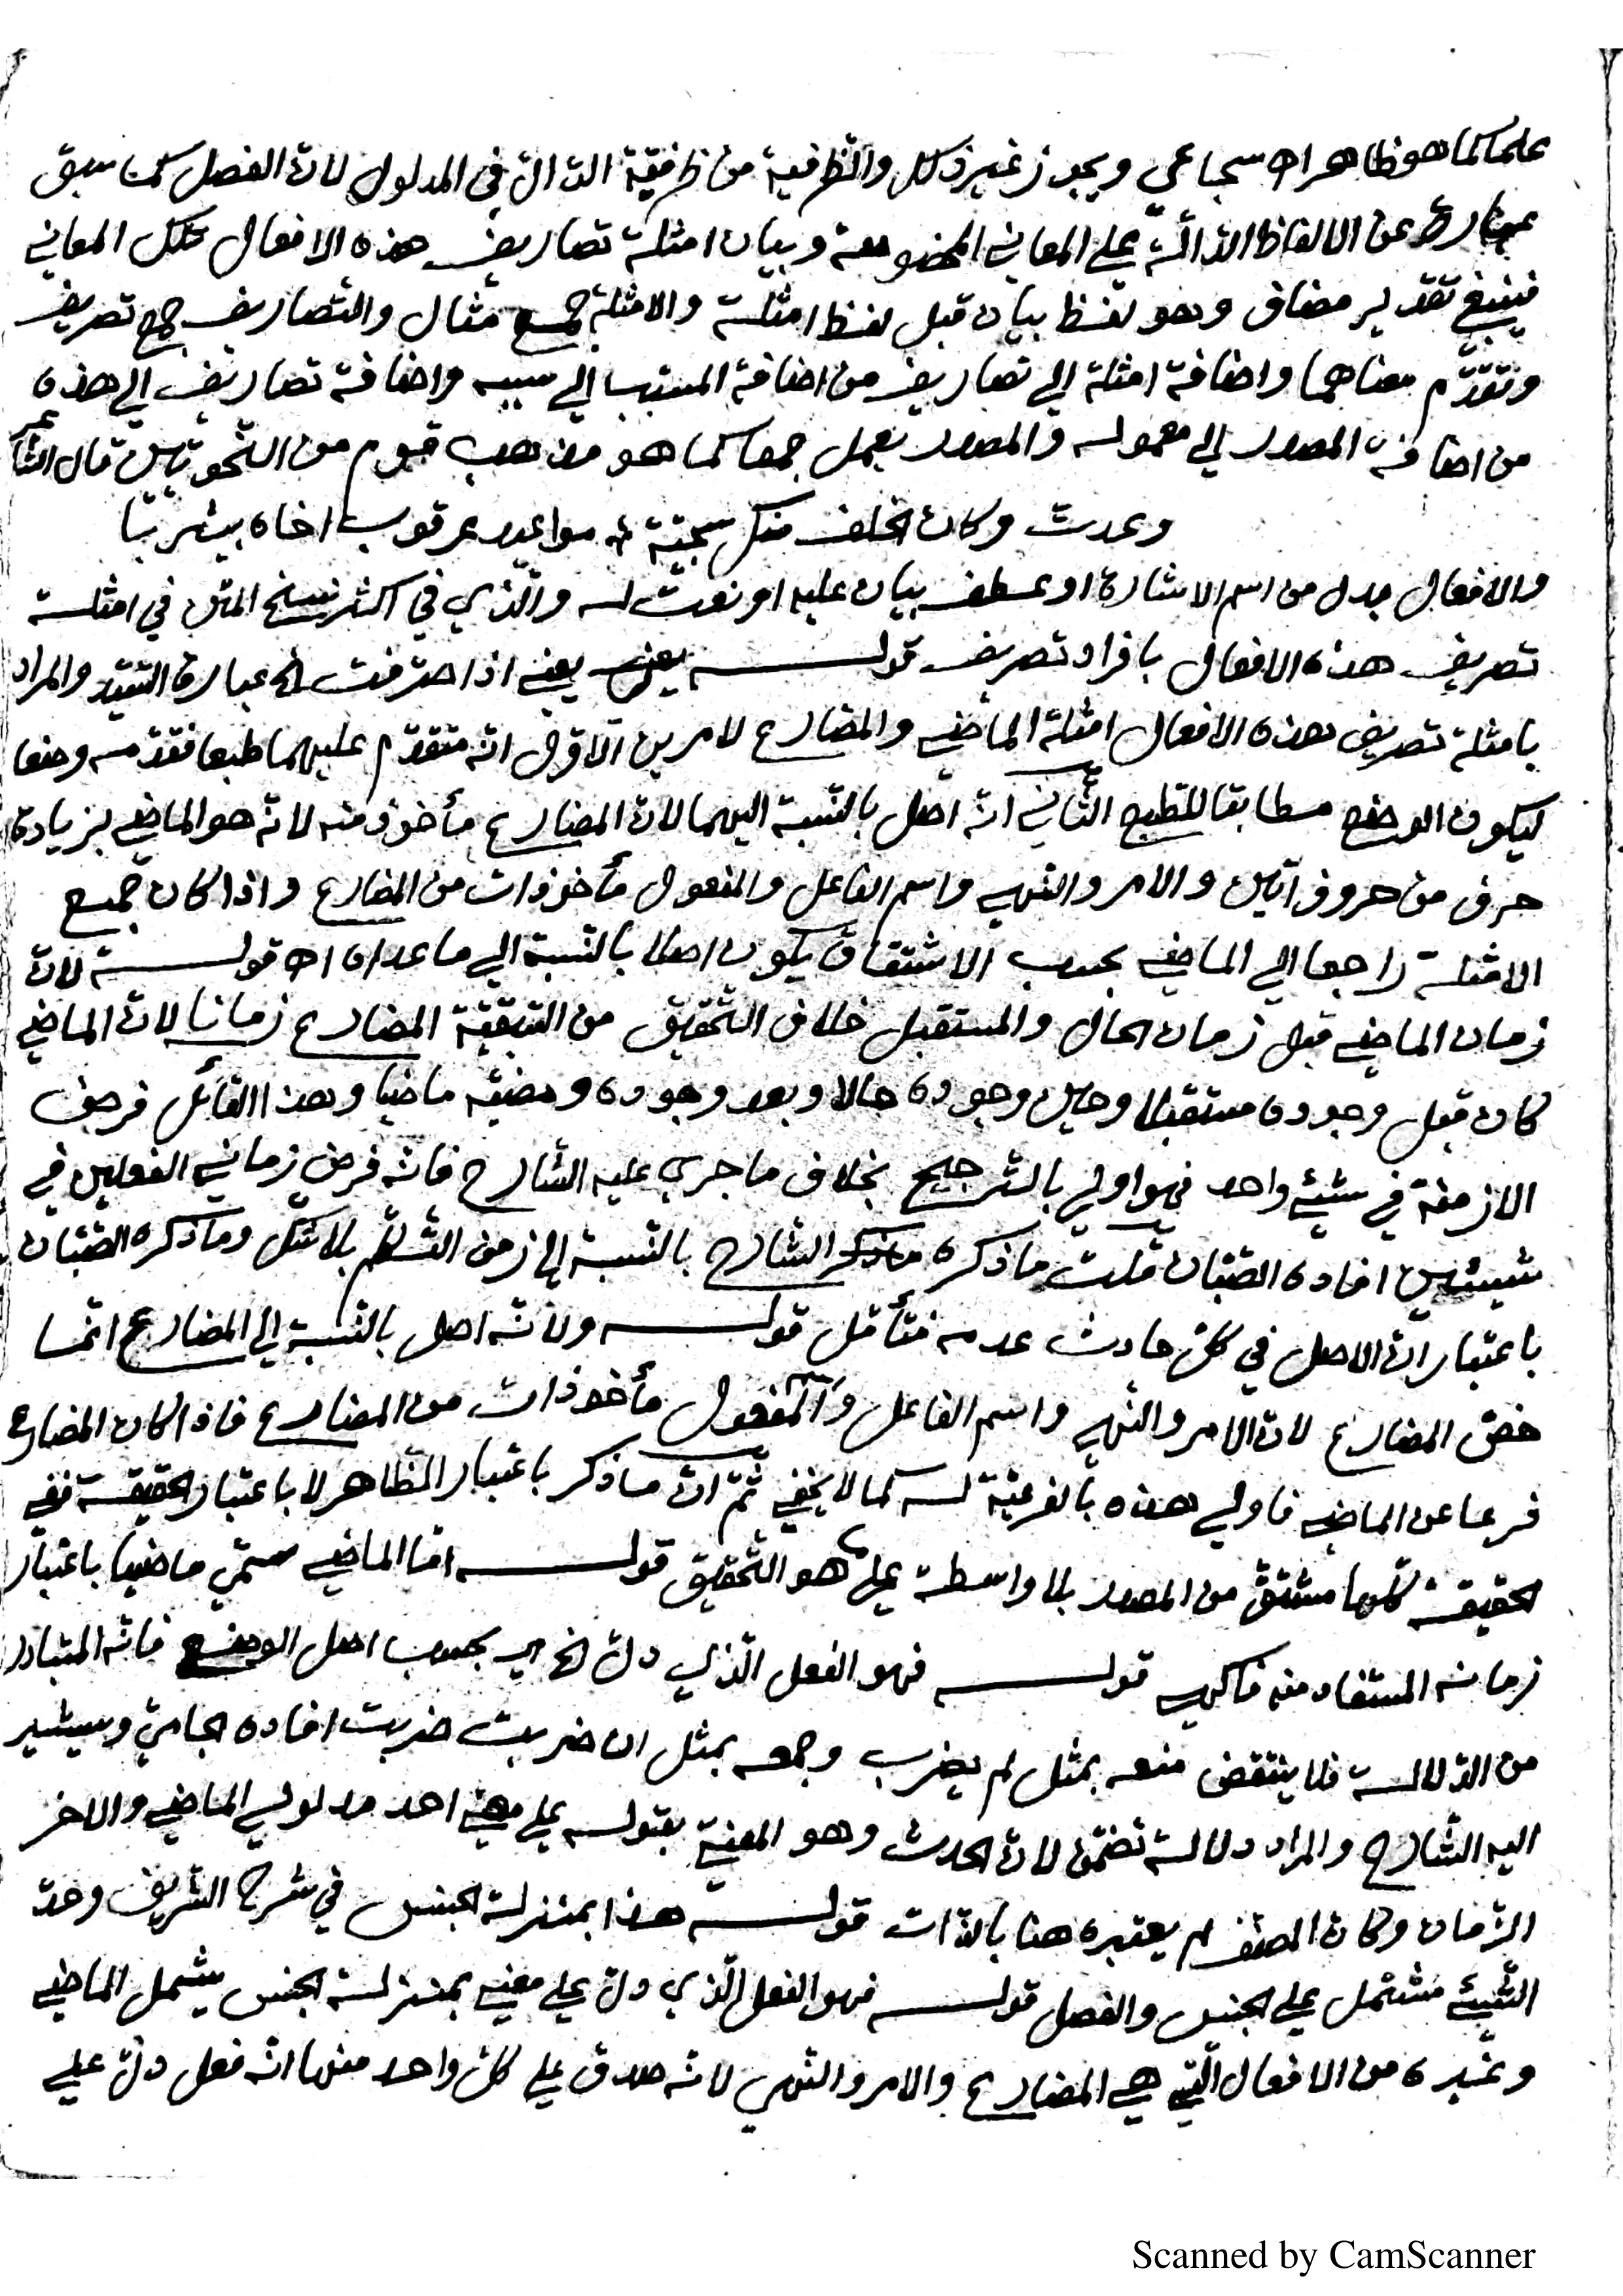 علما كما هو ظاهر اه سجاعي ويجوز غير ذلك والظرفية من ظرفية الدال في المدلول لان الفصل كما سبق
عبارة عن الالفاظ الدالة على المعاني المخصوصة وبيان امثلة تصاريف هذه الافعال تلك المعاني
فينبغي تقدير مضاف وهو لفظ بيان قبل لفظ امثلة والامثلة جمع مثال والتصاريف جمع تصريف
وتقدّم معناهما واضافة امثلة الى تصاريف من اضافة المسبب الى سببه واضافة تصاريف الى هذه
من اضافة المصدر الى معموله والمصدر يعمل جمعا كما هو مذهب قوم من النحويين قال الشاعر
وعدت وكان الخلف منك سجيّة مواعيد عرقوب اخاه بيثربيا
والافعال بدل من اسم الاشارة او عطف بيان عليه او نعت له والّذي في اكثر نسخ المتن في امثلة
تصريف هذه الافعال بافراد تصريف قوله يعني يعني اذا صرفت الخ عبارة السّيّد والمراد
بامثلة تصريف هذه الافعال امثلة الماضي والمضارع لامرين الاوّل انّه متقدّم عليهما طبعا فقدّمه وضعا
ليكون الوضع مطابقا للطبع الثّاني انّه اصل بالنّسبة اليهما لانّ المضارع مأخوذ منه لانّه هو الماضي بزيادة
حرف من حروف اتين والامر والنهي واسم الفاعل والمفعول مأخوذات من المضارع واذا كان جميع
الامثلة راجعا الى الماضي بحسب الاشتقاق يكون اصلا بالنّسبة الى ما عداه اه قوله لانّ
زمان الماضي قبل زمان الحال والمستقبل خلاف التّحقيق من السّبقيّة المضارع زمانا لانّ الماضي
كان قبل وجوده مستقبلا وحين وجوده حالا وبعد وجوده ومضيّه ماضيا وهذا القائل فرض
الازمنة في شيئ واحد فهو اولى بالتّرجيح بخلاف ما جرى عليه الشّارح فانّه فرض زماني الفعلين في
شيئين افاده الصّبّان قلت ما ذكره ما ذكر الشّارح بالنّسبة الى زمن التّكلّم بلا شكّ وما ذكره الصّبّان
باعتبار انّ الاصل في كلّ حادث عدمه فتأمّل قوله ولانّه اصل بالنّسبة الى المضارع انّما
خصّ المضارع لانّ الامر والنّهي واسم الفاعل والمفعول مأخوذات من المضارع فاذا كان المضارع
فرعا عن الماضي فاولى هذه بالفرعيّة له كما لا يخفى ثمّ انّ ما ذكر باعتبار الظاهر لا باعتبار الحقيقة ففي
الحقيقة كلّها مشتقّ من المصدر بلا واسطة على ما هو التّحقيق قوله امّا الماضي سمّي ماضيا باعتبار
زمانه المستفاد منه فاكهي قوله فهو الفعل الّذي دلّ الخ اي بحسب اصل الوضع فانّه المتبادر
من الدّلالة فلا ينتقض منعه بمثل لم يضرب وجمعه بمثل ان ضربت ضربت افاده الجامي وسيشير
اليه الشّارح والمراد دلالة تضمّن لانّ الحدث وهو المعنيّ بقوله على معنى احد مدلولي الماضي والاخر
الزّمان وكان المصنّف لم يعتبره هنا بالذّات قوله هذا بمنزلة الجنس في شرح الشّريف وحدّ
الشّيئ مشتمل على الجنس والفصل قوله فهو الفعل الّذي دلّ على معنى بمنزلة الجنس يشمل الماضي
وغيره من الافعال الّتي هي المضارع والامر والنّهي لانّه صادق على كلّ واحد منها انّه فعل دلّ على
Scanned by CamScanner